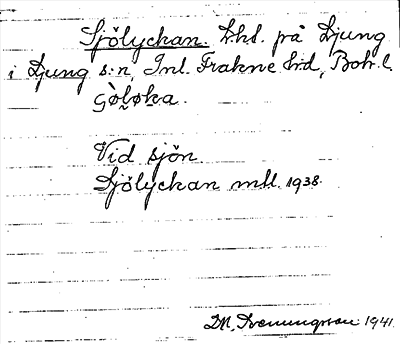 Sjölyckan. Lht. på Ljung
i Ljung s:n, Inl. Frakne hd, Boh. l.
Vid sjön.
Sjölyckan mtl. 1938.
D.N. Svenungsson 1941.